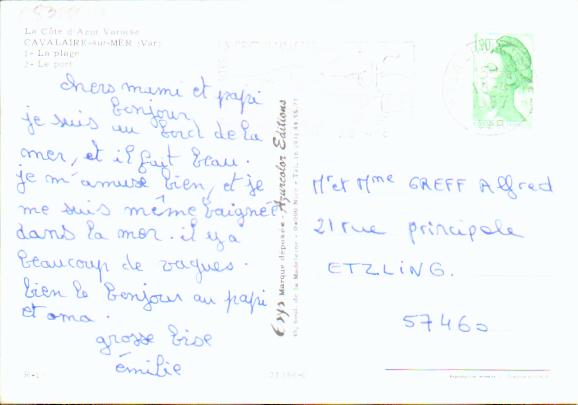 La Côte d'Azur Varoise
CAVALAIRE-sur-MER (Var)
1- La plage
2- Le port
chers mami et papi
bonjour
je suis au bord de la
mer, et il fait beau.
je m'amuse bien, et je
me suis même baignée
dans la mer. il y a
beaucoup de vagues.
bien le bonjour au papi
et oma.
grosse bise
émilie
Marque déposée - Azurcolor Editions
Mr et Mme GREFF Alfred
21 rue principale
ETZLING.
57460